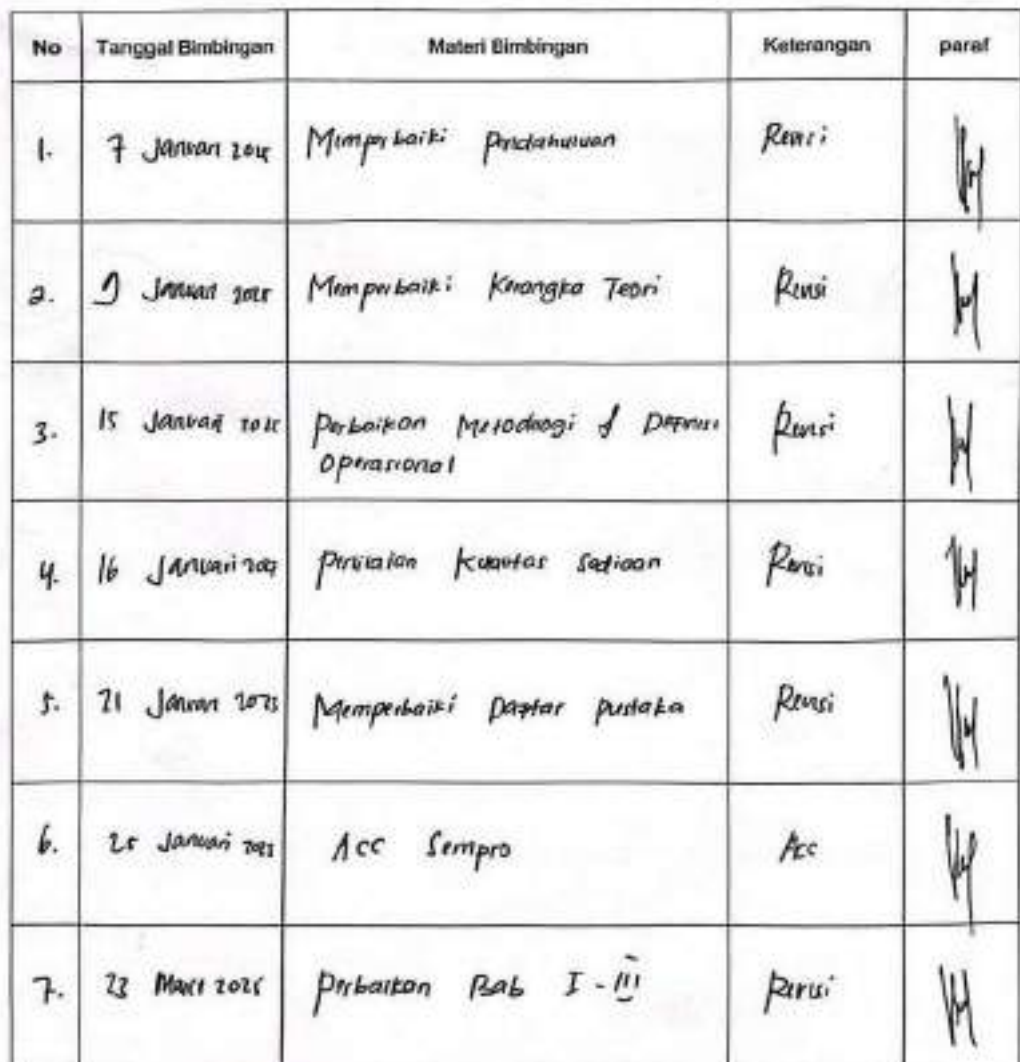 No Tanggal Bimbingan Materi Bimbingan Keterangan paraf
1. 7 Januari 2025 Memperbaiki Pendahuluan Revisi
2. 9 Januari 2025 Memperbaiki Kerangka Teori Revisi
3. 15 Januari 2025 Perbaikan Metodologi & Definisi Revisi
Operasional
4. 16 Januari 2025 Kualitas Sediaan Revisi
5. 21 Januari 2025 Memperbaiki Daftar pustaka Revisi
6. 25 Januari 2025 Acc Sempro Acc
7. 23 Maret 2025 Perbaikan Bab I - III Revisi